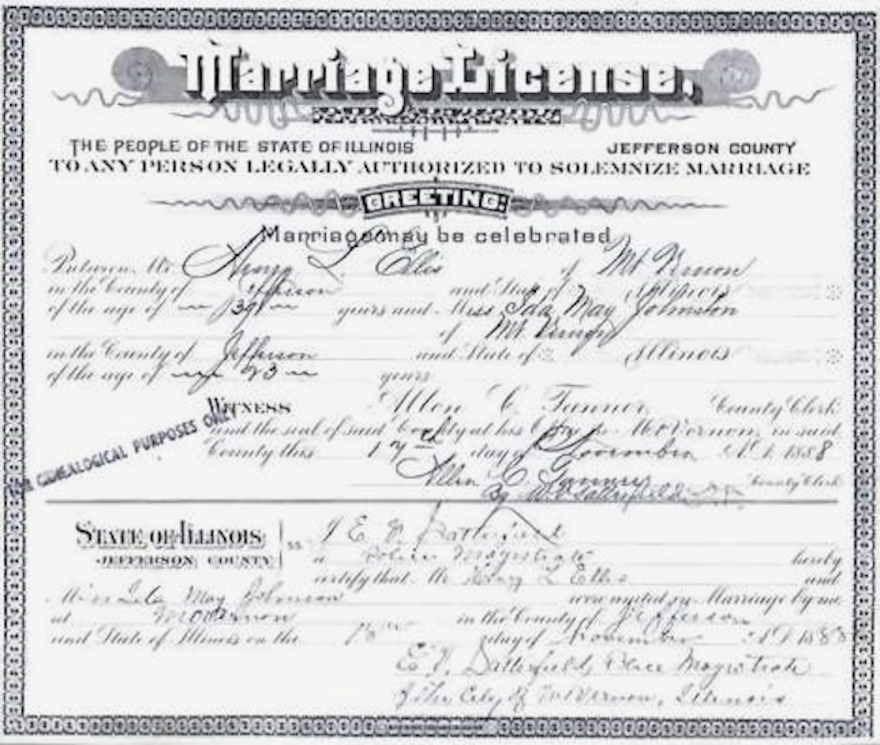 Marriage License.
THE PEOPLE OF THE STATE OF ILLINOIS JEFFERSON COUNTY
TO ANY PERSON LEGALLY AUTHORIZED TO SOLEMNIZE MARRIAGE
GREETING:
Marriage may be celebrated
Between Mr Henry L. Ellis of Mt Vernon
in the County of Jefferson and State of Illinois
of the age of 39 years and Miss Ida May Johnston
of Mt. Vernon
in the County of Jefferson and State of Illinois
of the age of 23 years
WITNESS Allen C. Tanner County Clerk
and the seal of said County at his Office in Mt Vernon, in said
County this 17th day of November A.D. 1888
Allen C. Tanner County Clerk
By Satterfield
FOR GENEALOGICAL PURPOSES ONLY
STATE OF ILLINOIS ss I E. V. Satterfield
JEFFERSON COUNTY a Police Magistrate hereby
certify that Mr L Ellis and
Miss May Johnson were united in Marriage by me
at Mt Vernon in the County of Jefferson
and State of Illinois on the day of November A.D. 1888
E. V. Satterfield Police Magistrate
of the City of Mt Vernon, Illinois